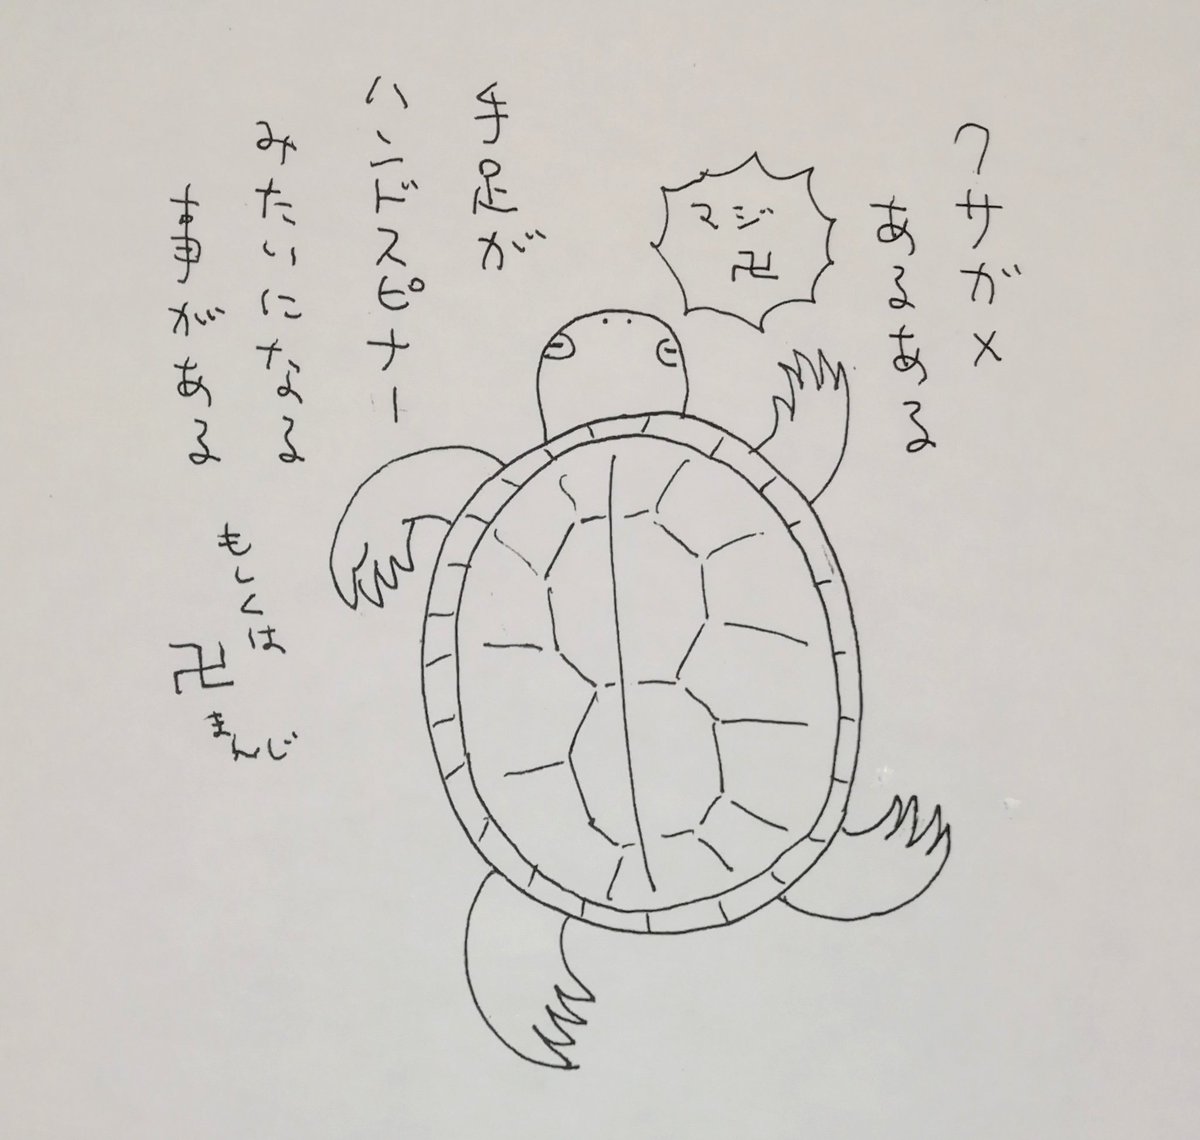 クサガメ
あるある
マジ
卍
手足が
ハンドスピナー
みたいになる
事がある
もしくは
卍
まんじ